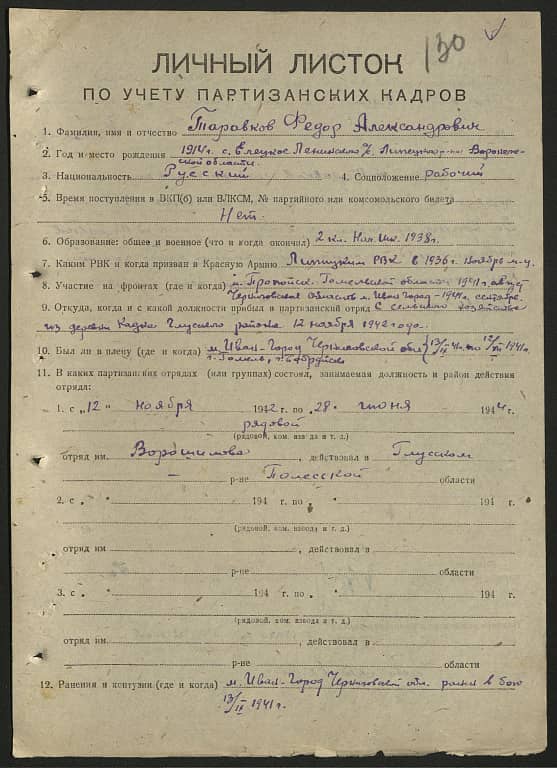 130
ЛИЧНЫЙ ЛИСТОК
ПО УЧЕТУ ПАРТИЗАНСКИХ КАДРОВ
1. Фамилия, имя и отчество Таравков Федор Александрович
2. Год и место рождения 1914г. с. Елецкое Ленинского Липецкого р-на Воронеж-
ской области.
3. Национальность Русский 4. Соцположение рабочий
5. Время поступления в ВКП(б) или ВЛКСМ, № партийного или комсомольского билета
Нет.
6. Образование: общее и военное (что и когда окончил) 2 кл. Нач. шк. 1938г.
7. Каким РВК и когда призван в Красную Армию Липецким РВК в 1936г. Ноябрь м-ц.
8. Участие на фронтах (где и когда) м. Пропойск Гомельской области 1941г. август
Черниговская область м. Иван Город - 1941г. сентябре.
9. Откуда, когда и с какой должности прибыл в партизанский отряд С сельского хозяйства
из деревни Глусского района 12 ноября 1942 года.
10. Был ли в плену (где и когда) м. Иван-Город Черниговской обл. 13/ 41г. по 12/ 1941г.
г. Гомель, г. Бобруйск
11. В каких партизанских отрядах (или группах) состоял, занимаемая должность и район действия
отряда:
1. с „12“ ноября 1942 г. по „28“ июня 1944 г.
рядовой
(рядовой, ком. взвода и т. д.)
отряд им. Ворошилова, действовал в Глусском
— р-не Полесской области
2. с „ “ 194 г. по „ “ 194 г.
(рядовой, ком. взвода и т. д.)
отряд им. , действовал в
р-не области
3. с „ “ 194 г. по „ “ 194 г.
(рядовой, ком. взвода и т. д.)
отряд им. , действовал в
р-не области
12. Ранения и контузии (где и когда) м. Иван-Город Черниговской обл. ранен в бою
13/ 1941г.